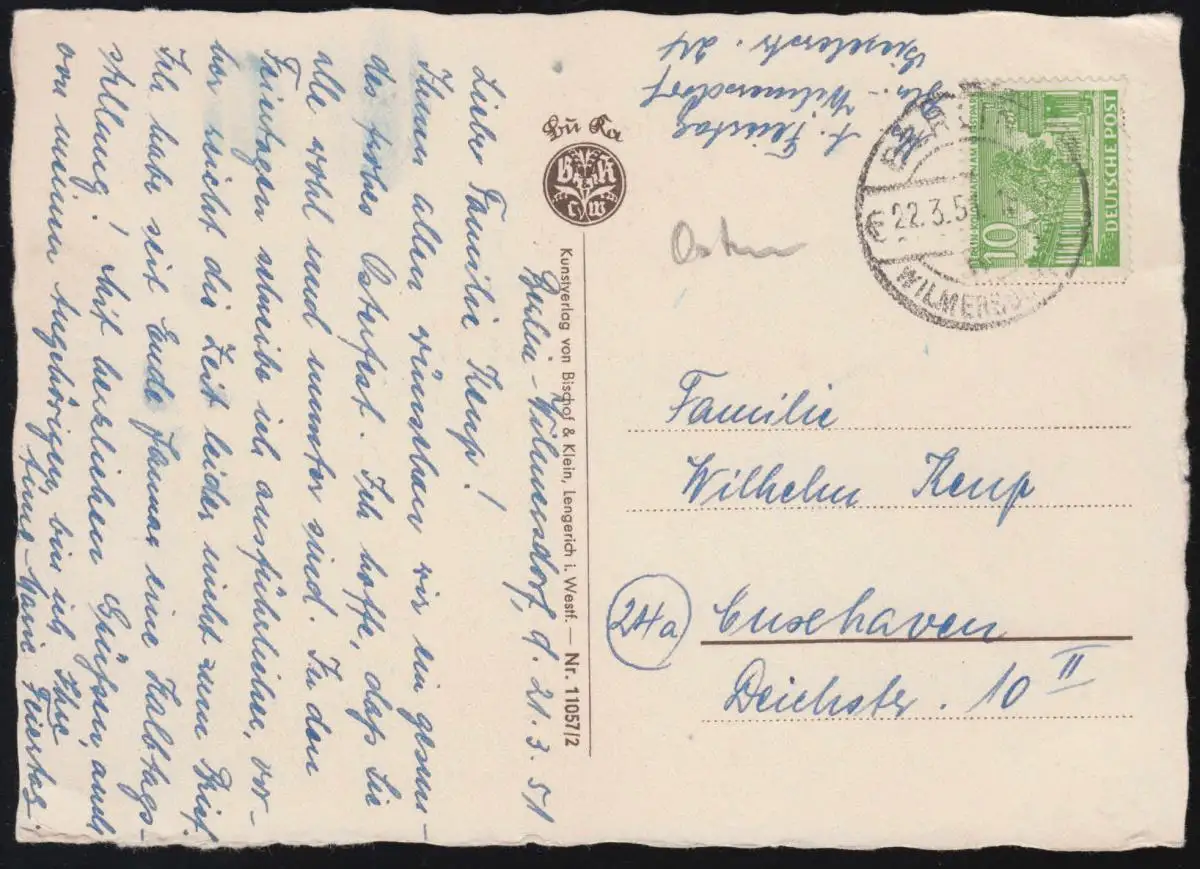 A. Feiertag
Bln.-Wilmersdorf
str. 24
Bu Ka
B K
L W
Kunstverlag von Bischof & Klein, Lengerich i. Westf. — Nr. 11057/2
Berlin-Wilmersdorf, d. 21.3.51
Liebe Familie Kemp!
Ihnen allen wünschen wir ein gesun-
des frohes Osterfest. Ich hoffe, daß Sie
alle wohl und munter sind. Zu den
Feiertagen schreibe ich ausführlicher, vor-
her reicht die Zeit leider nicht zum Brief.
Ich habe seit Ende Januar eine Halbtags-
stellung! Mit herzlichen Grüßen, auch
von meinen Angehörigen, bin ich Ihre
Anne-Marie Feiertag.
Ostern
BERLIN
22.3.51
WILMERSDORF
10
DEUTSCHE POST
Familie
Wilhelm Kemp
24a
Cuxhaven
Deichstr. 10 II